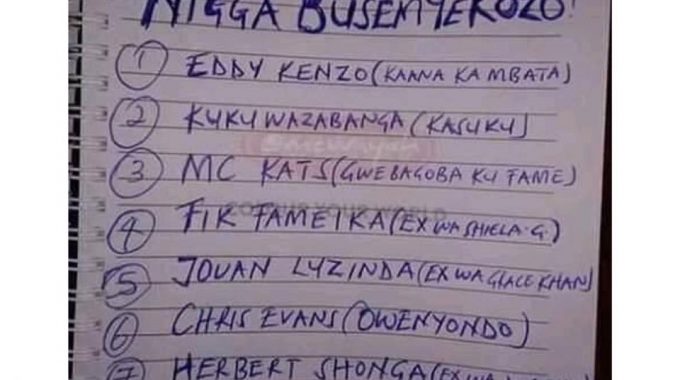 NIGGA BUSEMYEKOZO!
1 EDDY KENZO (KAANA KA MBATA)
2 KUKU WAZABANGA (KASUKU)
3 MC KATS (GWEBAGOBA KU FAME)
4 FIK FAMEIKA (EX WA SHIELA.G.)
5 JOUAN LYZINDA (EX WA GLACE KHAN)
6 CHRIS EVANS (OWENYONDO)
7 HERBERT SHONGA (EX WA